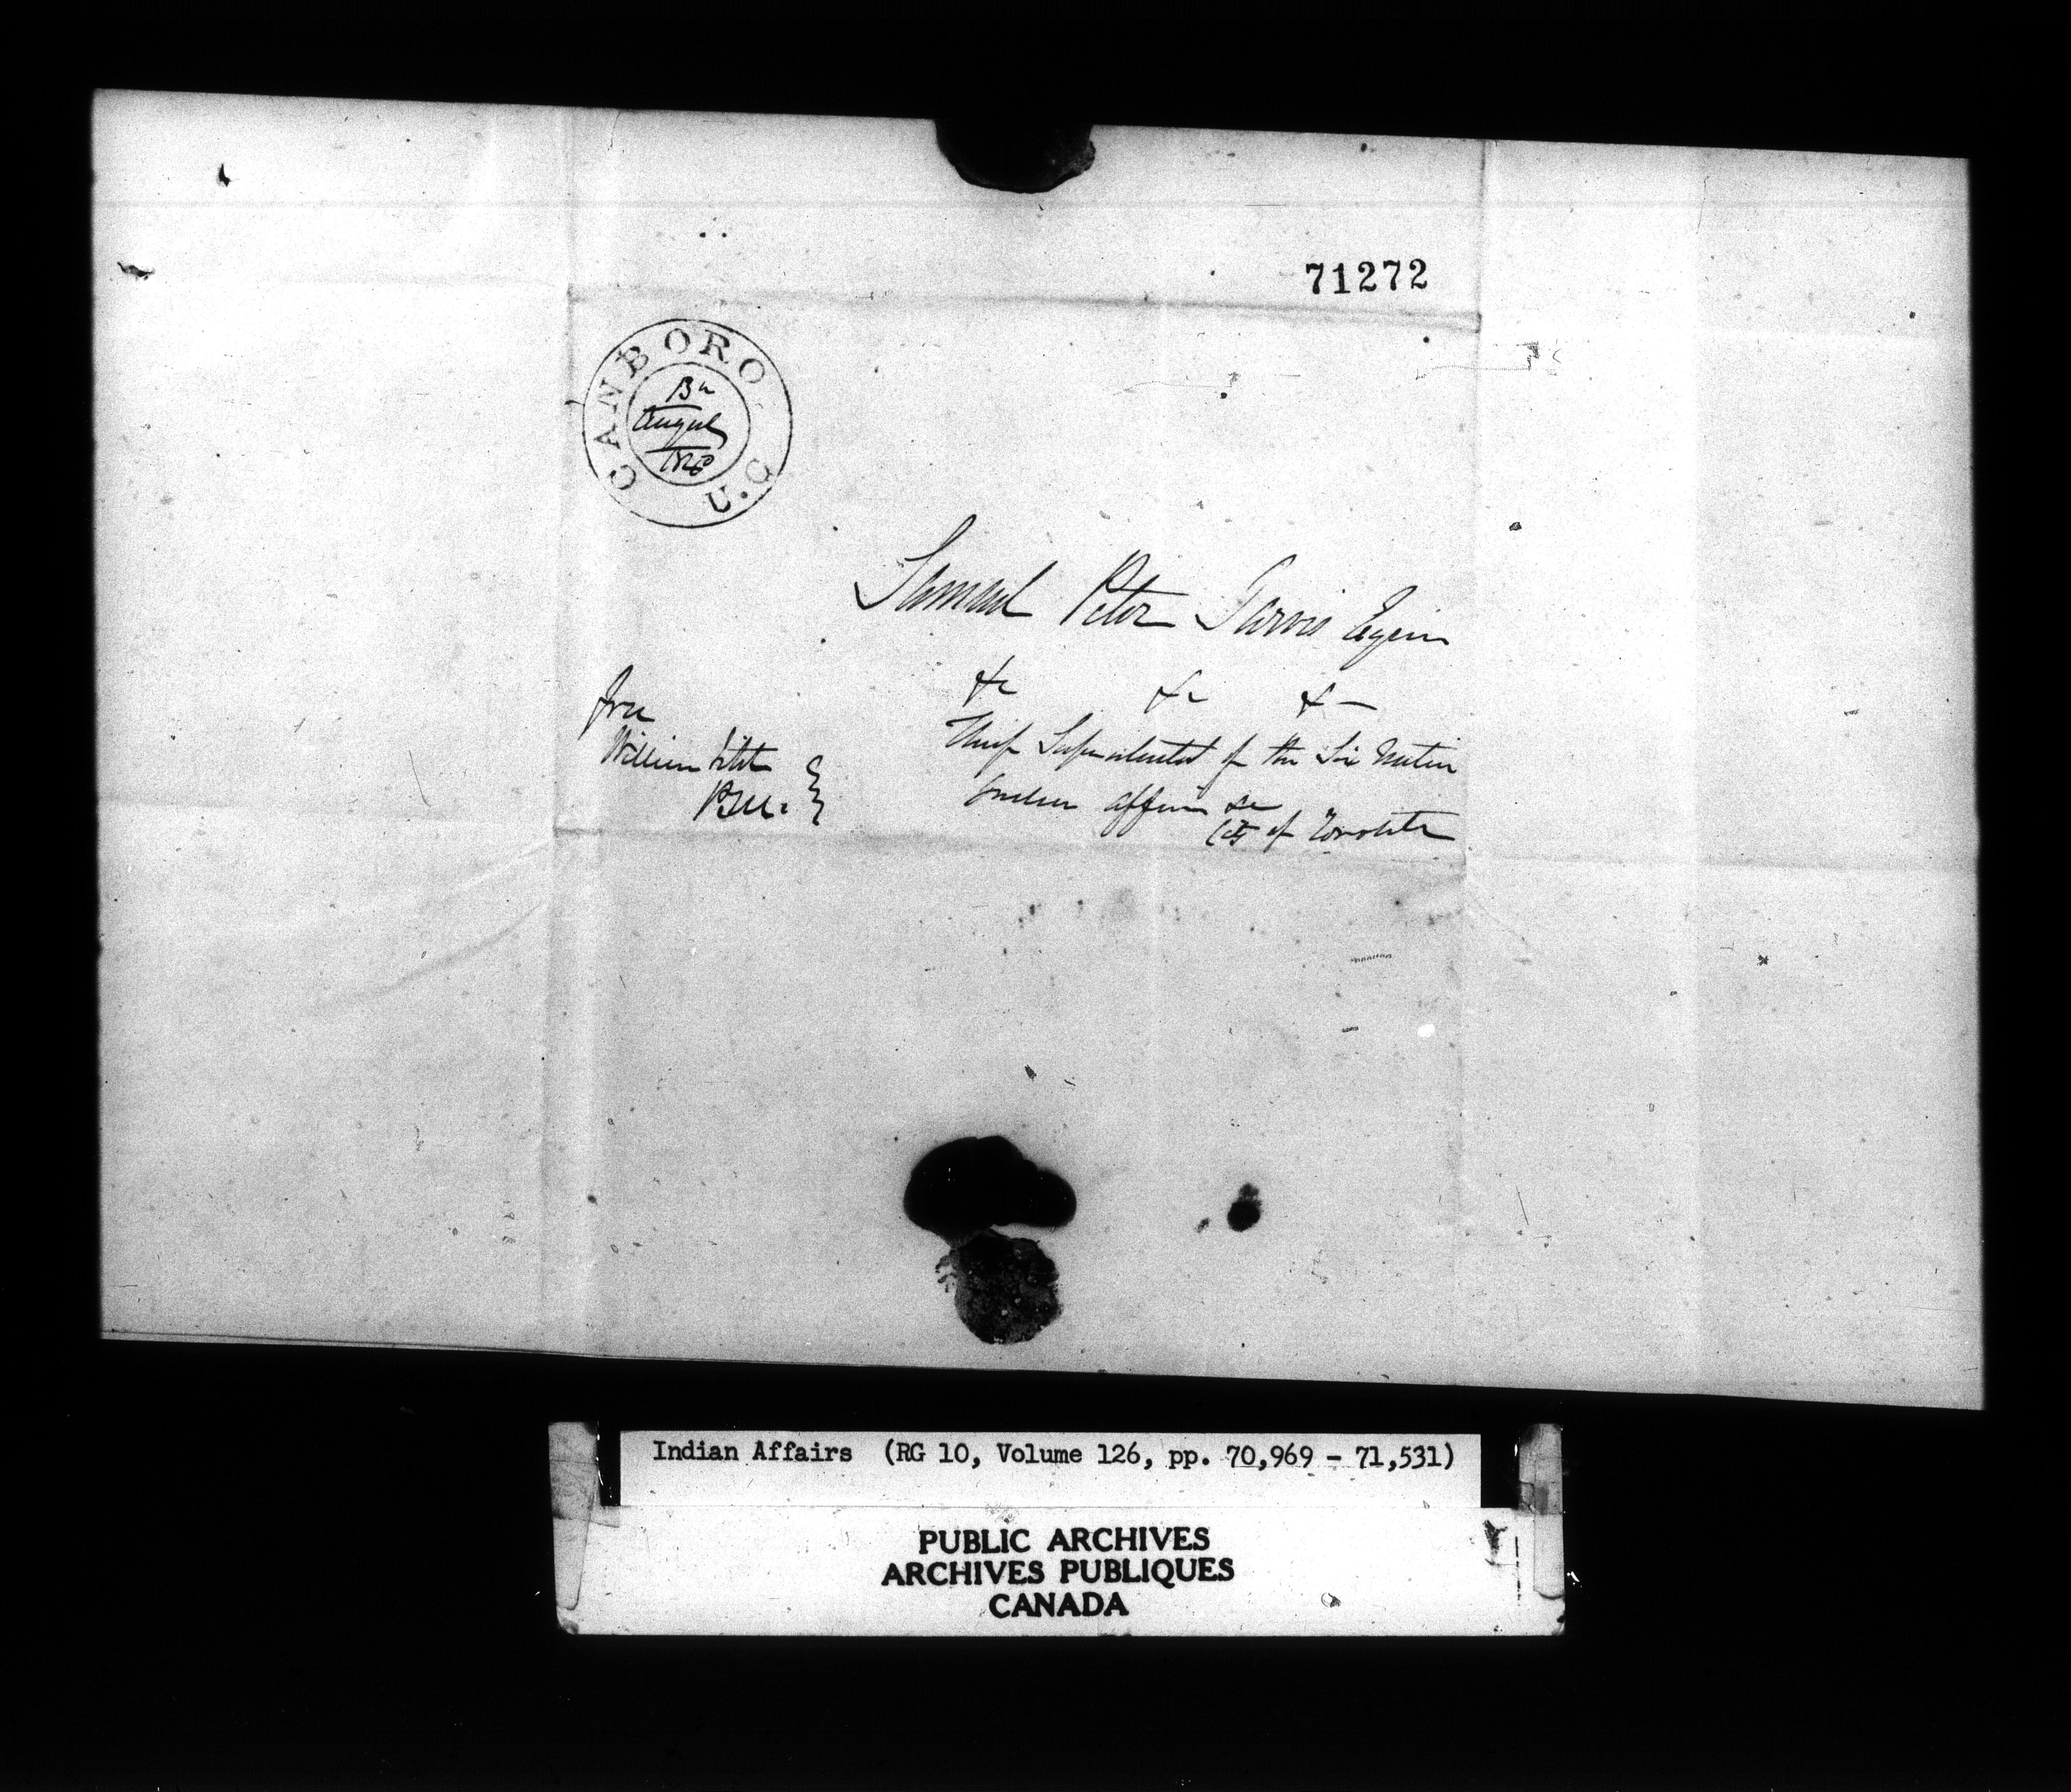 71272
CANBORO U.C
August
Samuel Peter Jarvis Esquire
&c &c &
Free
Chief Superintendent of the Six Nation
William
Indian affairs &c
P.M.
City of Toronto
Indian Affairs (RG 10, Volume 126, pp. 70,969 - 71,531)
PUBLIC ARCHIVES
ARCHIVES PUBLIQUES
CANADA